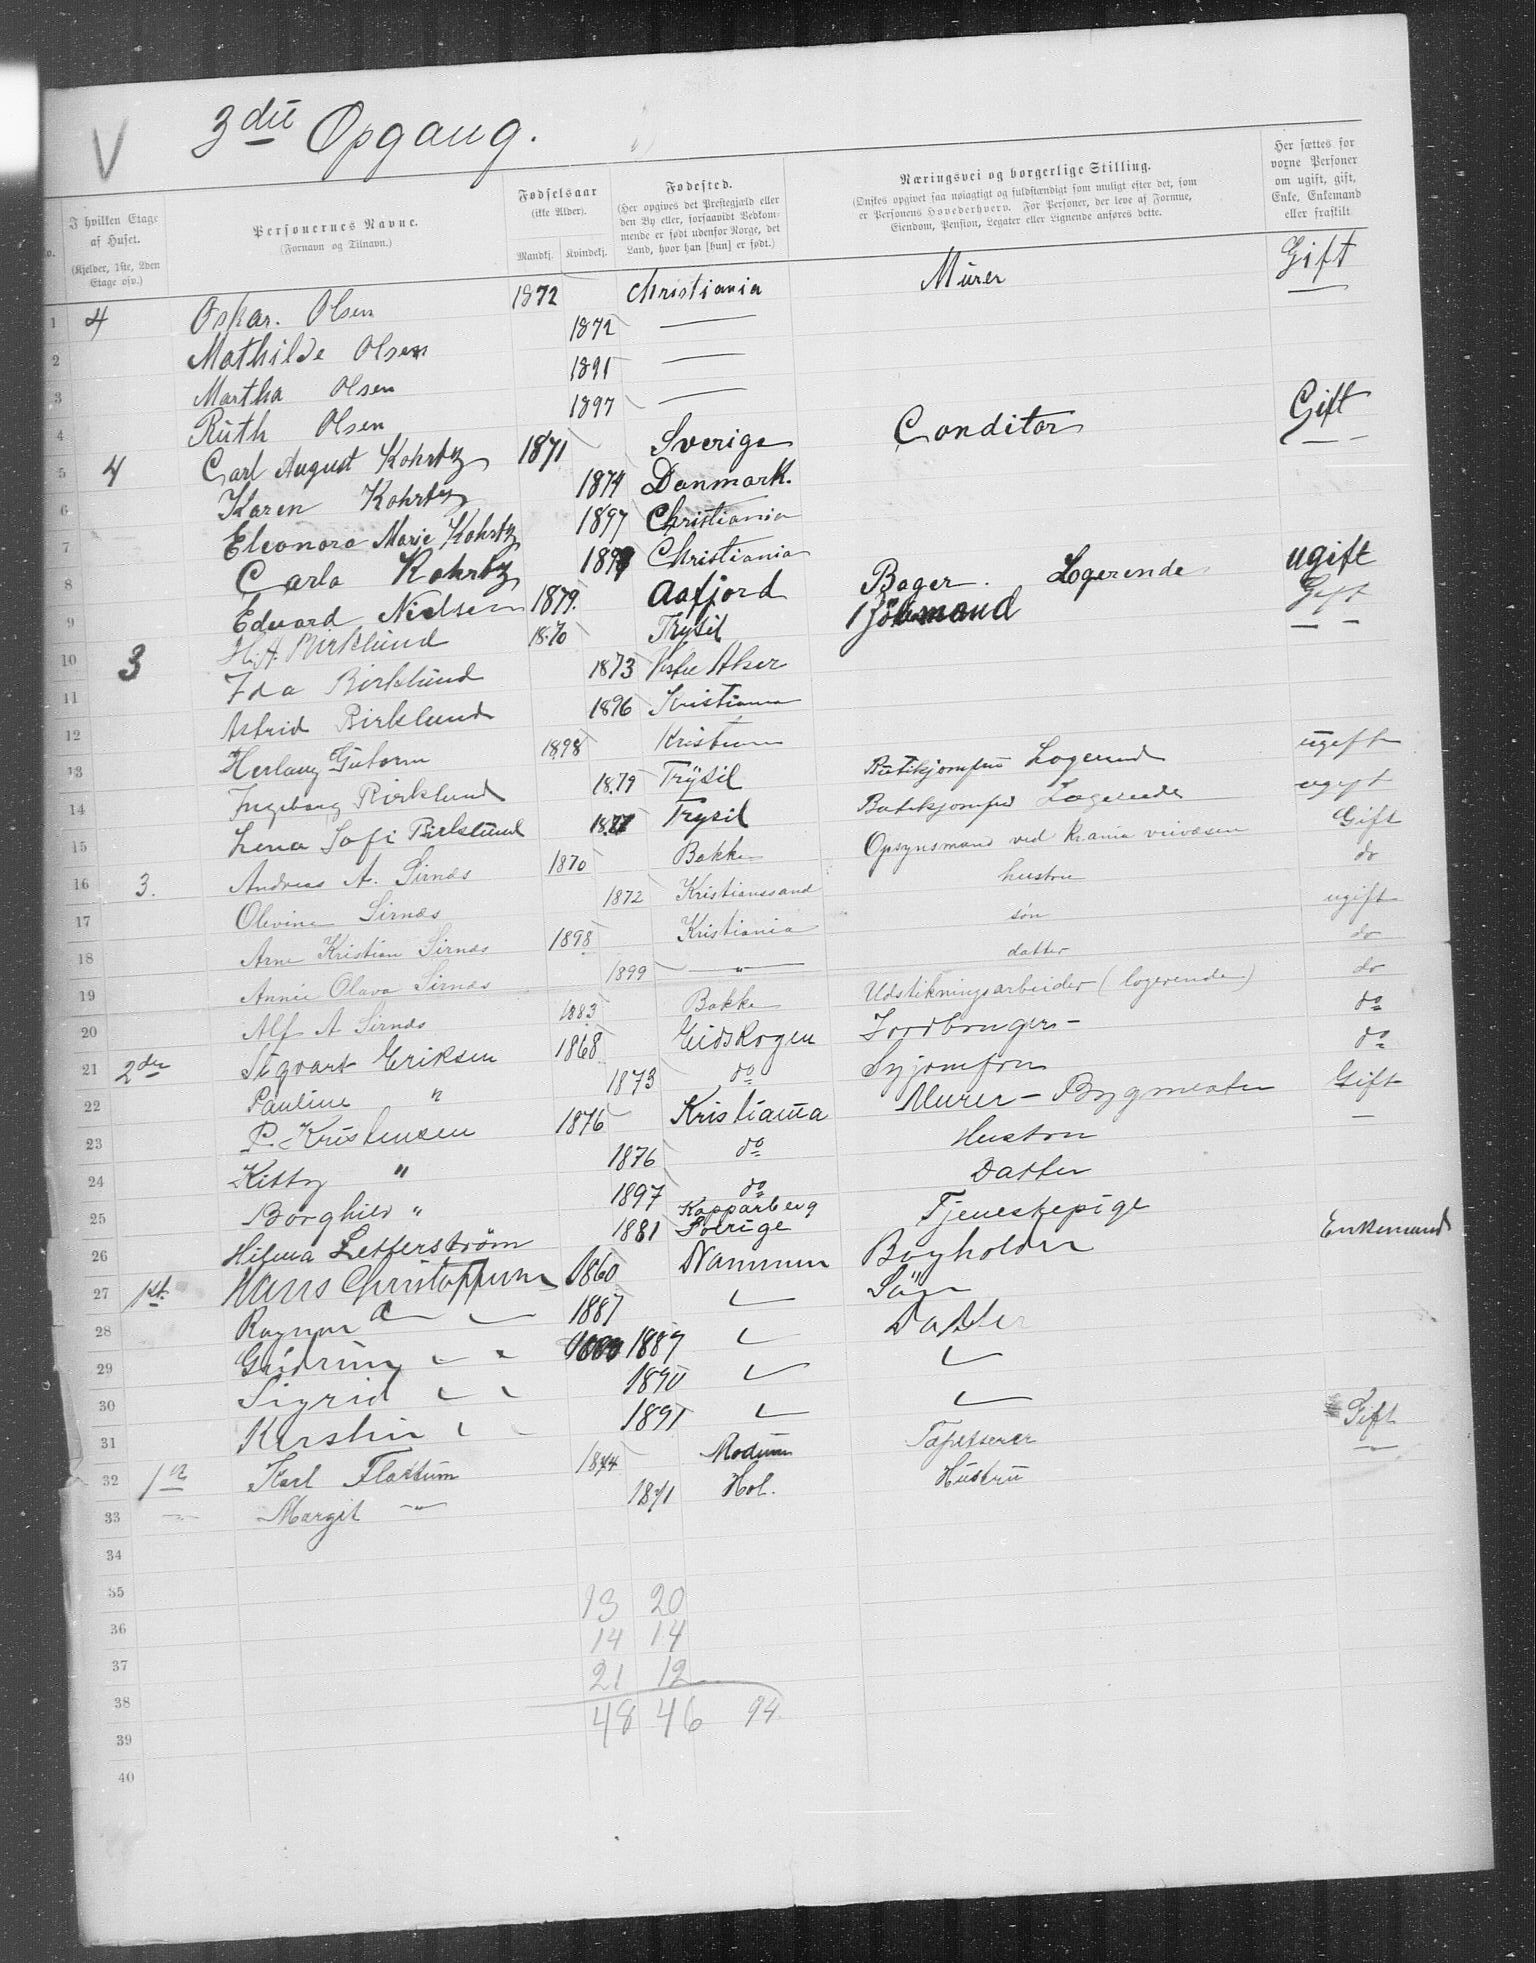 V 3die Opgang.
No.
I hvilken Etage af Huset. (Kjelder, 1ste, 2den Etage osv.)
Personernes Navne. (Fornavn og Tilnavn.)
Fødselsaar (ikke Alder). Mandkj. Kvindekj.
Fødested. (Her opgives det Prestegjæld eller den By eller, forsaavidt Vedkommende er født udenfor Norge, det Land, hvor han [hun] er født.)
Næringsvei og borgerlige Stilling. (Ønskes opgivet saa nøiagtigt og fuldstændigt som muligt efter det, som er Personens Hovederhverv. For Personer, der leve af Formue, Eiendom, Pension, Legater eller Lignende anføres dette.
Her sættes for voxne Personer om ugift, gift, Enke, Enkemand eller fraskilt
1 4 Oskar. Olsen 1872 Christiania Murer Gift
2 Mathilde Olsen 1872 —
3 Martha Olsen 1891 —
4 Ruth Olsen 1897 —
5 4 Carl August Kohrtz 1871 Sverige Conditor Gift
6 Karen Kohrtz 1874 Danmark.
7 Eleonora Marie Kohrtz 1897 Christiania
8 Carla Kohrtz Christiania
9 Edvard Nielsen 1879. Aafjord Bager. Logerende ugift
10 3 H. A. Birklund 1870 Trysil Gift
11 Ida Birklund 1873 Vestre Aker
12 Astrid Birklund 1896 Kristiania
13 Herlaug Gutorm 1898 Kristiania
14 Ingeborg Birklund 1879 Trysil Butikjomfru Logerende ugift
15 Lena Sofi Birklund 1877 Trysil Butikjomfru Logerende ugift
16 3. Andreas A. Sirnæs 1870 Bakke Opsynsmand ved Krania veivæsen Gift
17 Olevine Sirnæs 1872 Kristianssand hustru do
18 Arne Kristian Sirnæs 1898 Kristiania søn ugift
19 Annie Olava Sirnæs 1899 — " — datter do
20 Alf A Sirnæs 1883 Bakke Udstikningsarbeider (logerende) do
21 2den Sigvart Eriksen 1868 Eidskogen Jordbruger - do
22 Pauline " 1873 do Syjomfru do
23 P. Kristensen 1876 Kristiania Murer - Bygmester Gift
24 Kitty " 1876 do Hustru —
25 Borghild " 1897 do Datter
26 Hilma Letterström 1881 Kopparberg Sverige Tjenestepige
27 1st. Hans Christophersen 1860 Bogholder Enkemand
28 Ragnar 1887 Søn
29 Gudrun 1889 Datter
30 Sigrid 1890
31 Kirsten 1891
32 1st Karl Flattum 1874 Modum Tapetserer Gift
33 — Margit — " 1871 Hol. Hustru —
34
35 13 20
36 14 14
37 21 12
38 48 46 94
39
40